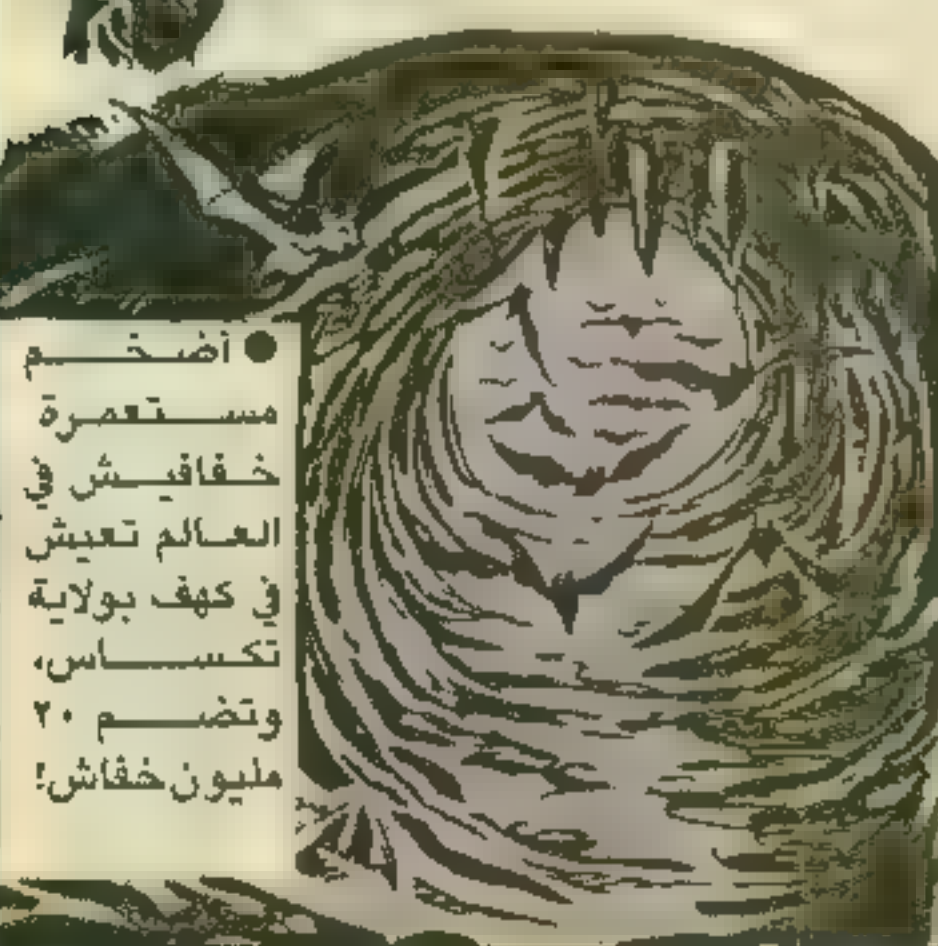 ● أضخم
مستعمرة
خفافيش في
العالم تعيش
في كهف بولاية
تكساس،
وتضم ٢٠
مليون خفاش!